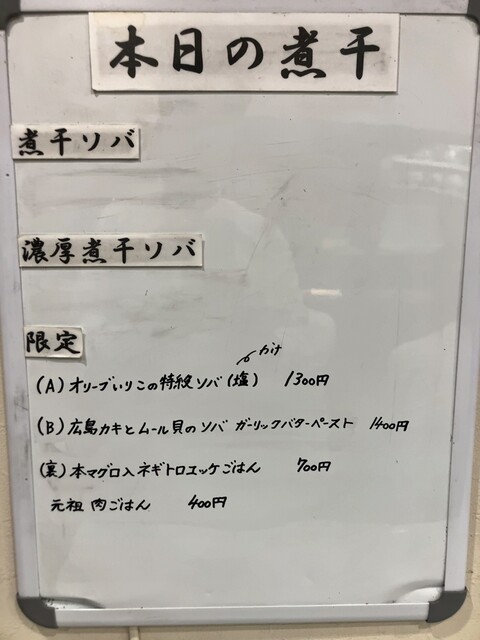 本日の煮干
煮干ソバ
濃厚煮干ソバ
限定
かけ
(A) オリーブいりこの特級ソバ(塩) 1300円
(B) 広島カキとムール貝のソバ ガーリックバターペースト 1400円
(裏) 本マグロ入ネギトロユッケごはん 700円
元祖 肉ごはん 400円